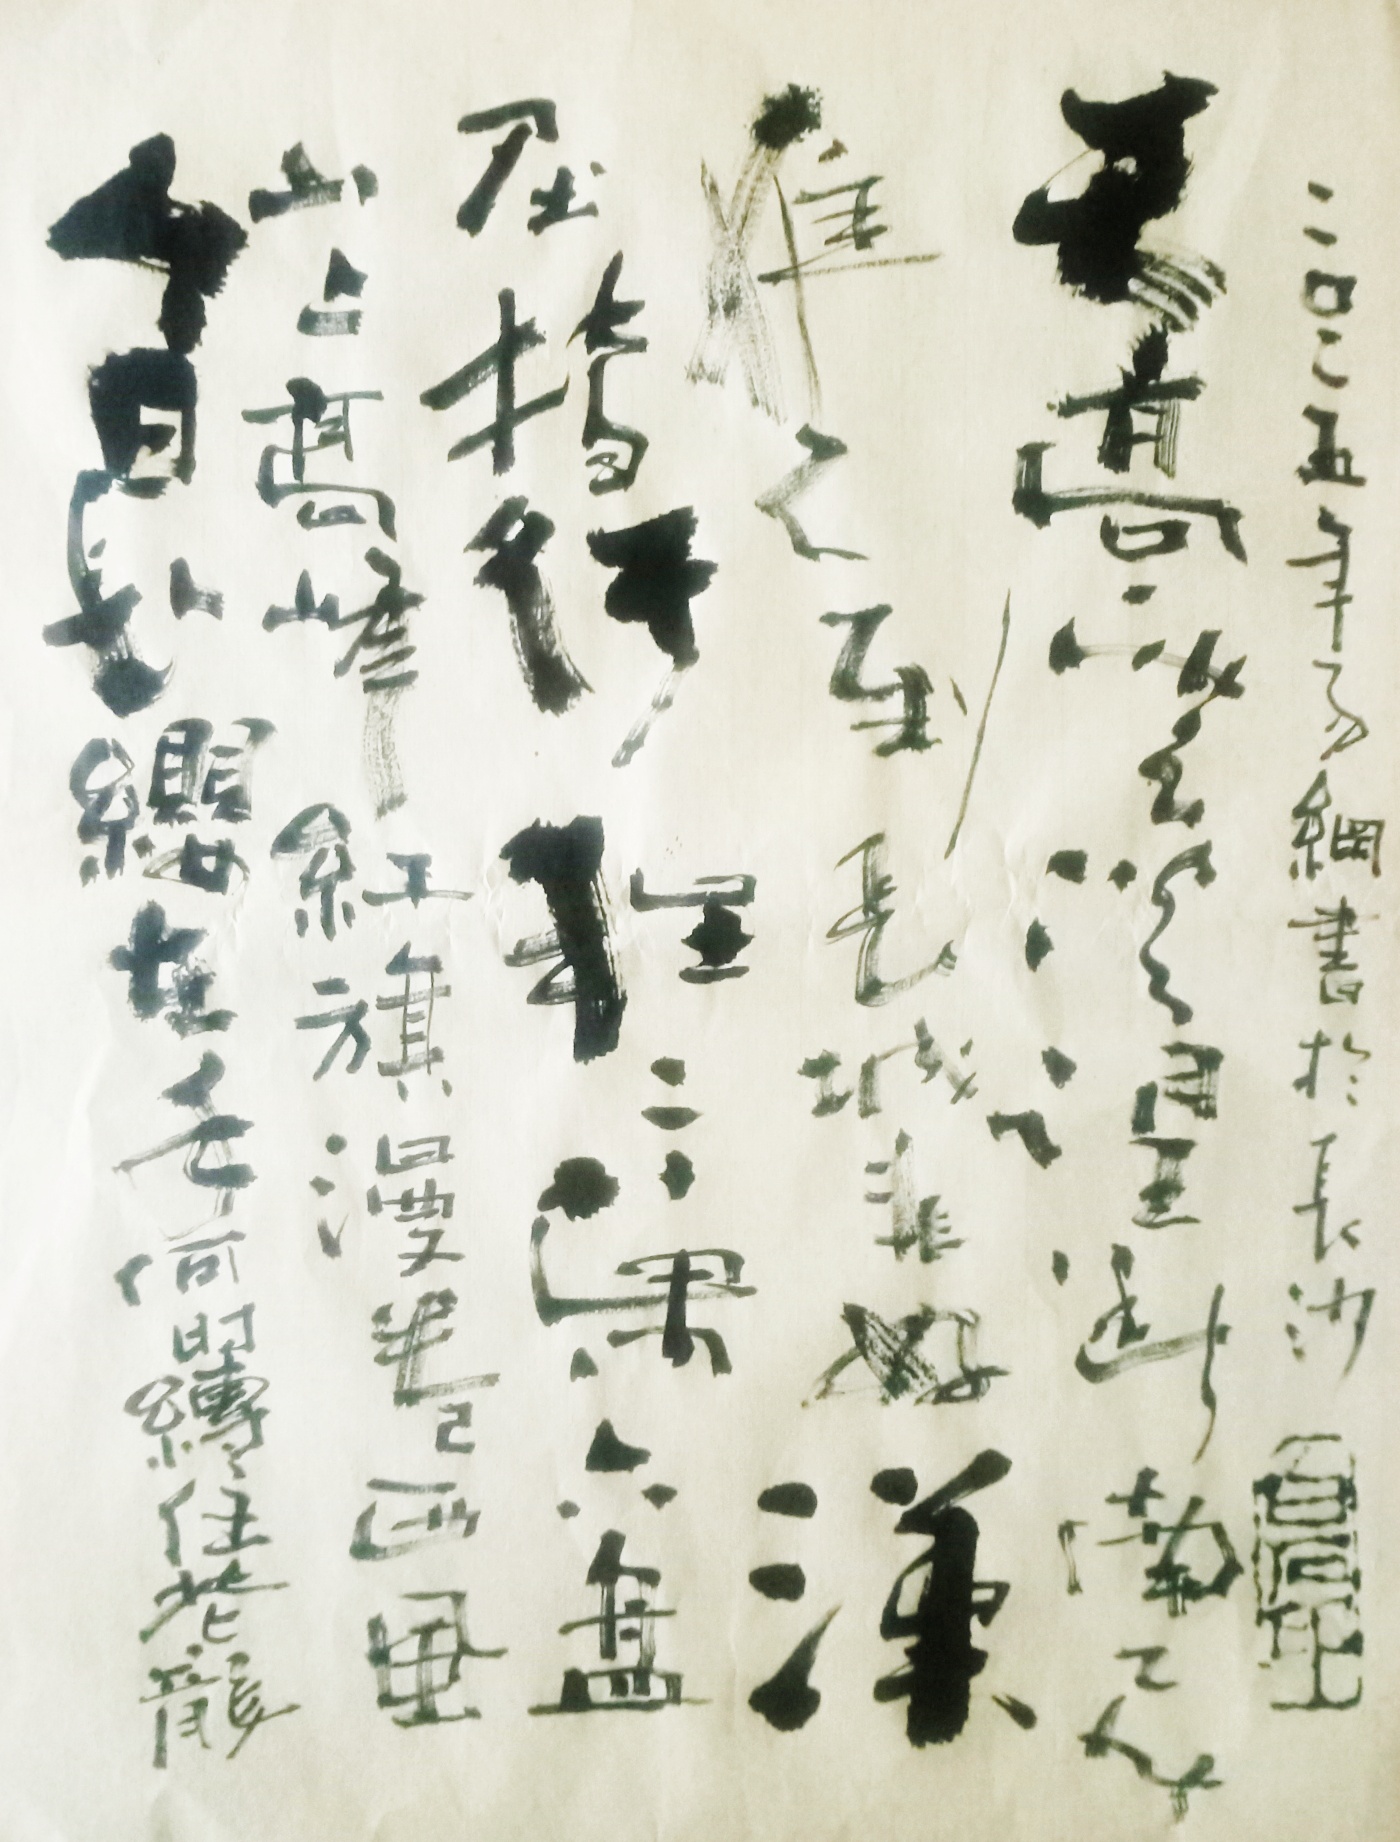 二〇二五年易綱書於長沙
天高雲淡望斷南飛
雁不到長城非好漢
屈指行程二萬六盤
山上高峰紅旗漫卷西風
今日長纓在手何時縛住蒼龍